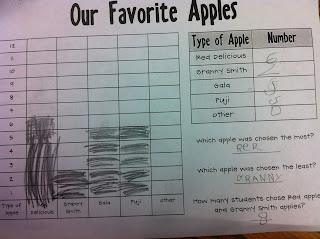 Our Favorite Apples
12
11
10
9
8
7
6
5
4
3
2
1
Type of Apple
Red Delicious
Granny Smith
Gala
Fuji
Other
Type of Apple Number
Red Delicious
Granny Smith
Gala 5
Fuji 5
Other 0
Which apple was chosen the most?
Red
Which apple was chosen the least?
GRANNY
How many students chose Red apple
and Granny Smith apples?
8